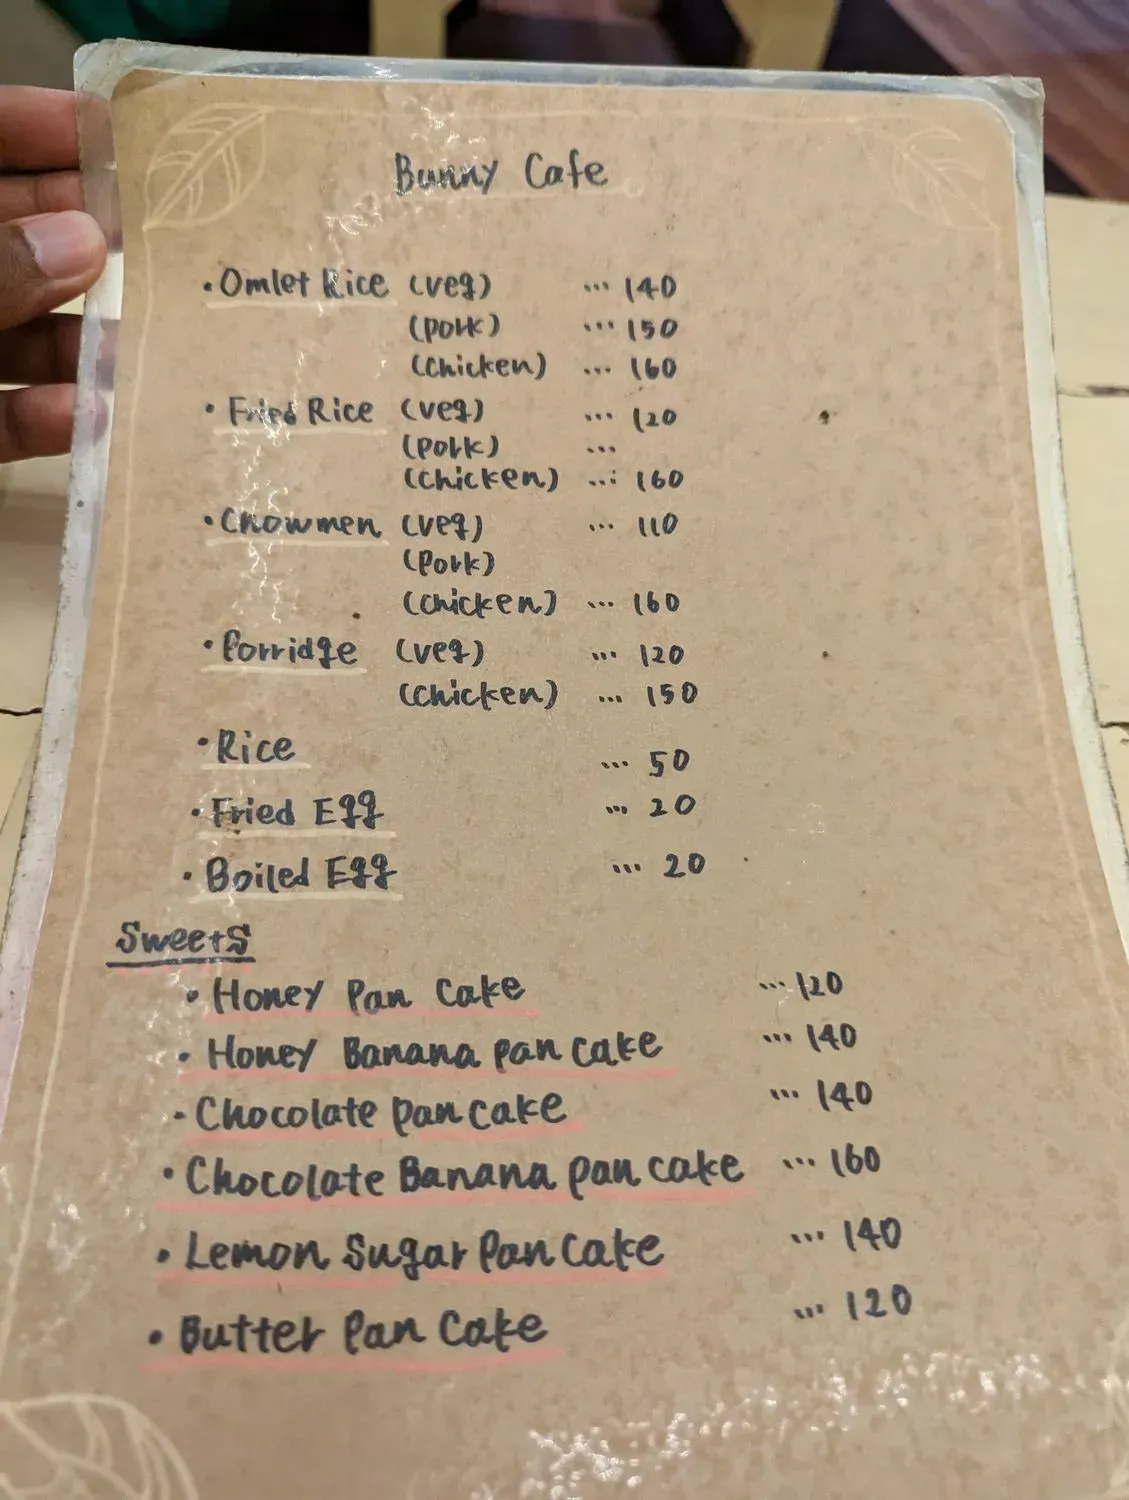 Bunny Cafe
• Omlet Rice (veg) ... 140
(pork) ... 150
(chicken) ... 160
• Fried Rice (veg) ... 120
(pork) ...
(chicken) ... 160
• Chowmen (veg) ... 110
(pork)
(chicken) ... 160
• Porridge (veg) ... 120
(chicken) ... 150
• Rice ... 50
• Fried Egg ... 20
• Boiled Egg ... 20
Sweets
• Honey Pan Cake ... 120
• Honey Banana pan cake ... 140
• Chocolate pan cake ... 140
• Chocolate Banana pan cake ... 160
• Lemon Sugar Pan Cake ... 140
• Butter Pan Cake ... 120